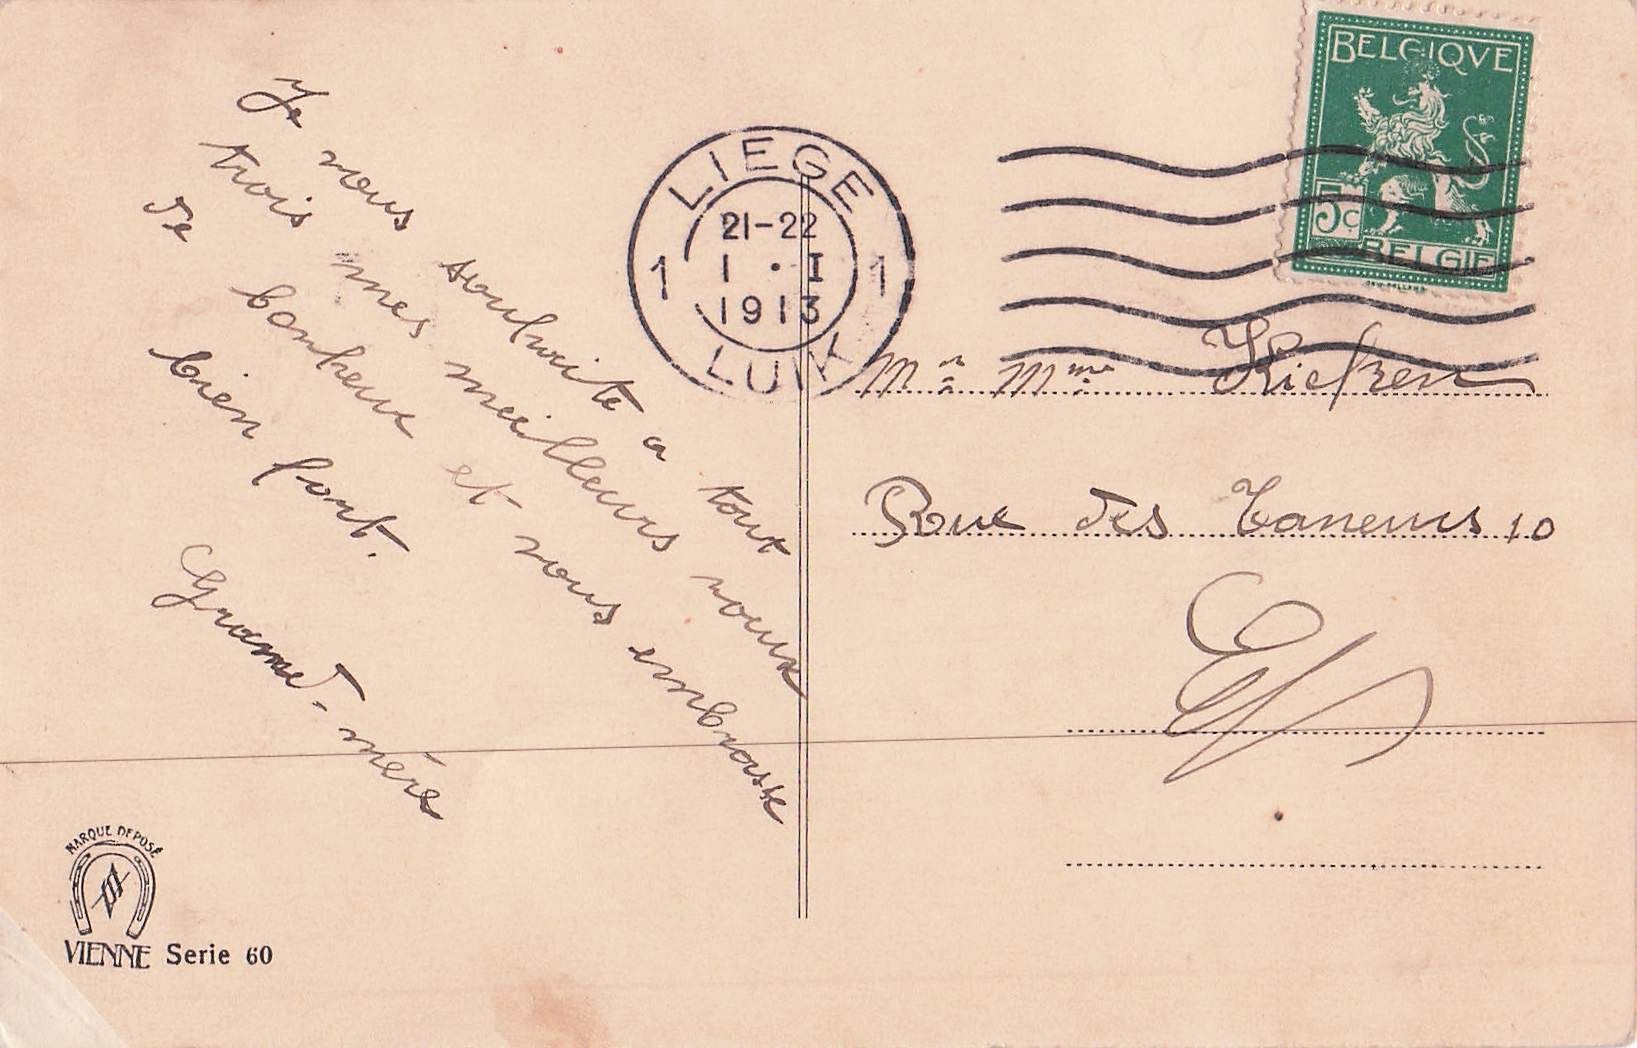 Je vous souhaite a tout
trois mes meilleurs voux
de bonheur et vous embrasse
bien fort.
Grand-mère
MARQUE DEPOSÉ
VIENNE Serie 60
LIEGE
21-22
1 1 · I 1
1913
LUIK
BELGIQVE
5c
BELGIE
Mr & Mme
Rue des Taneurs 10